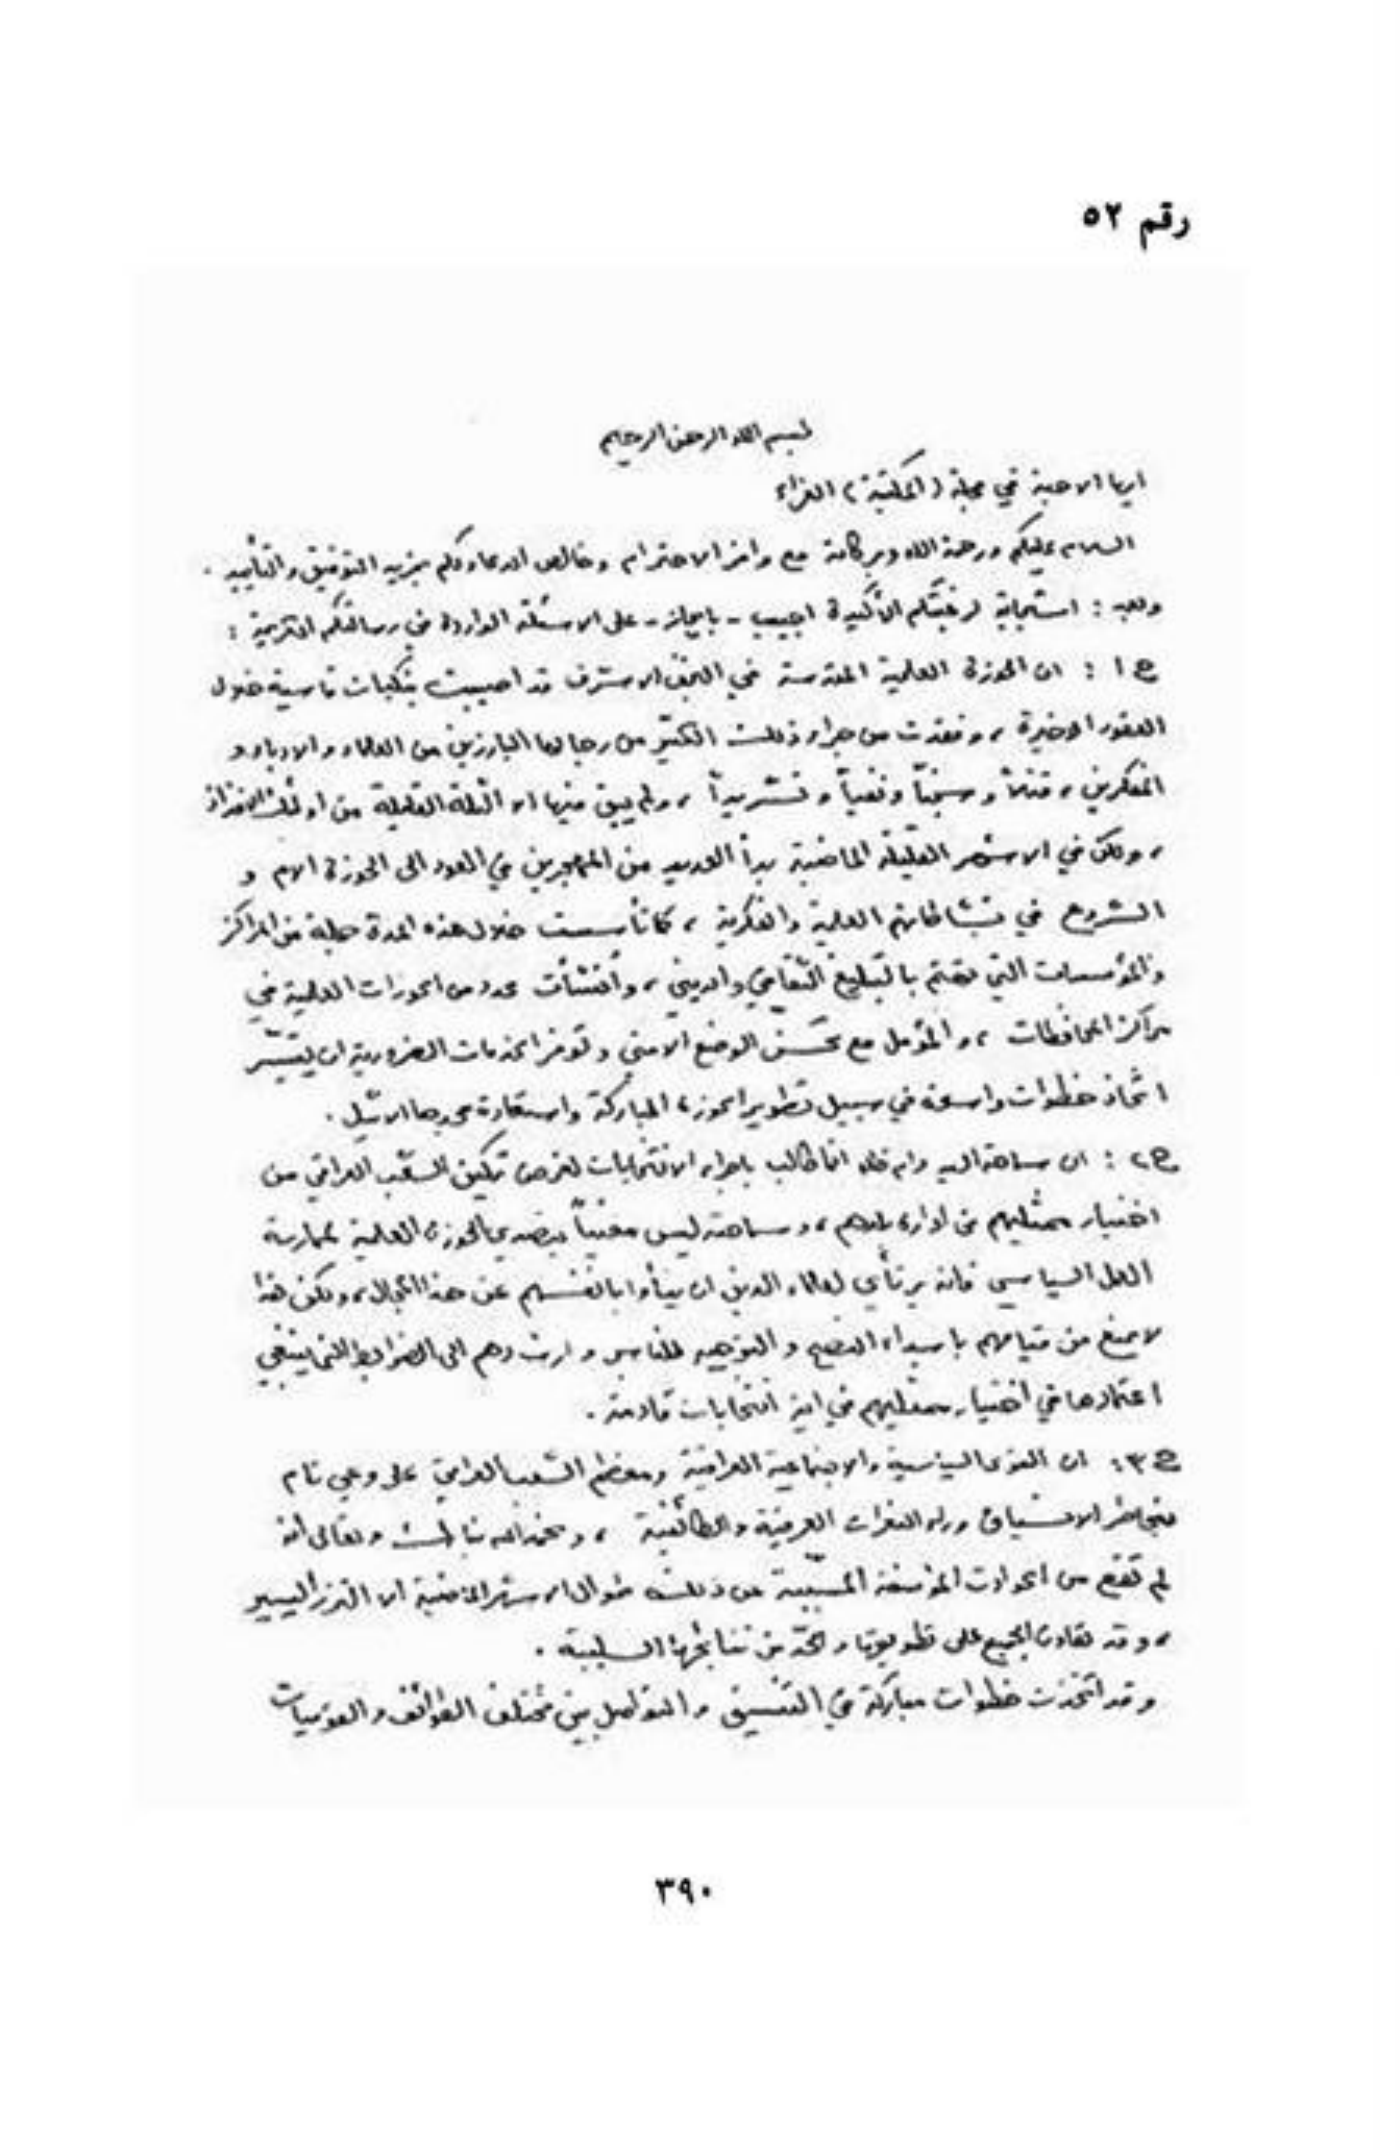 رقم ٥٢
بسم الله الرحمن الرحيم
ايها الاحبة في مجلة (المكتبة) الغراء
السلام عليكم ورحمة الله وبركاته مع وافر الاحترام وخالص الدعاء لكم بمزيد التوفيق والتأييد .
وبعد : استجابة لرغبتكم الأكيدة اجيب - بايجاز - على الاسئلة الواردة في رسالتكم الكريمة :
ج١ : ان الحوزة العلمية المقدسة في النجف الاشرف قد اصيبت بنكبات قاسية خلال
العقود الاخيرة ، وفقدت من جراء ذلك الكثير من رجالها البارزين من العلماء والادباء و
المفكرين ، قتلاً وسجناً ونفياً وتشريداً ، ولم يبق منها الا الثلة القليلة من اولئك الافذاذ
، ولكن في الاشهر القليلة الماضية بدأ العديد من المهجرين في العود الى الحوزة الام و
الشروع في نشاطاتهم العلمية والفكرية ، كما تأسست خلال هذه المدة جملة من المراكز
والمؤسسات التي تهتم بالتبليغ الثقافي والديني ، وأنشأت عدد من الحوزات العلمية في
مراكز المحافظات ، والمؤمل مع تحسن الوضع الامني وتوفر الخدمات الضرورية ان يتيسّر
اتخاذ خطوات واسعة في سبيل تطوير الحوزة المباركة واستعادة مجدها الاثيل .
ج٢ : ان سماحة السيد دام ظله انما طالب باجراء الانتخابات لغرض تمكين الشعب العراقي من
اختيار ممثليهم في ادارة بلادهم ، وسماحته ليس معنياً بتصدي الحوزة العلمية لممارسة
العمل السياسي فانه يرتأي لعلماء الدين ان ينأوا بانفسهم عن هذا المجال ، ولكن هذا
لا يمنع من قيامهم باسداء النصح والتوجيه للناس وارشادهم الى الضوابط التي ينبغي
اعتمادها في اختيار ممثليهم في اية انتخابات قادمة .
ج٣ : ان القوى السياسية والاجتماعية العراقية ومعظم الشعب العراقي على وعي تام
بمخاطر الانسياق وراء النعرات العرقية والطائفية ، ونحمد الله تبارك وتعالى أنه
لم تقع من الحوادث المؤسفة المسببة عن ذلك طوال الاشهر الماضية الا النزر اليسير
، وقد تعاون الجميع على تطويقها والحد من نتائجها السلبية .
وقد اتخذت خطوات مباركة في التنسيق والتواصل بين مختلف الطوائف والقوميات
٣٩٠